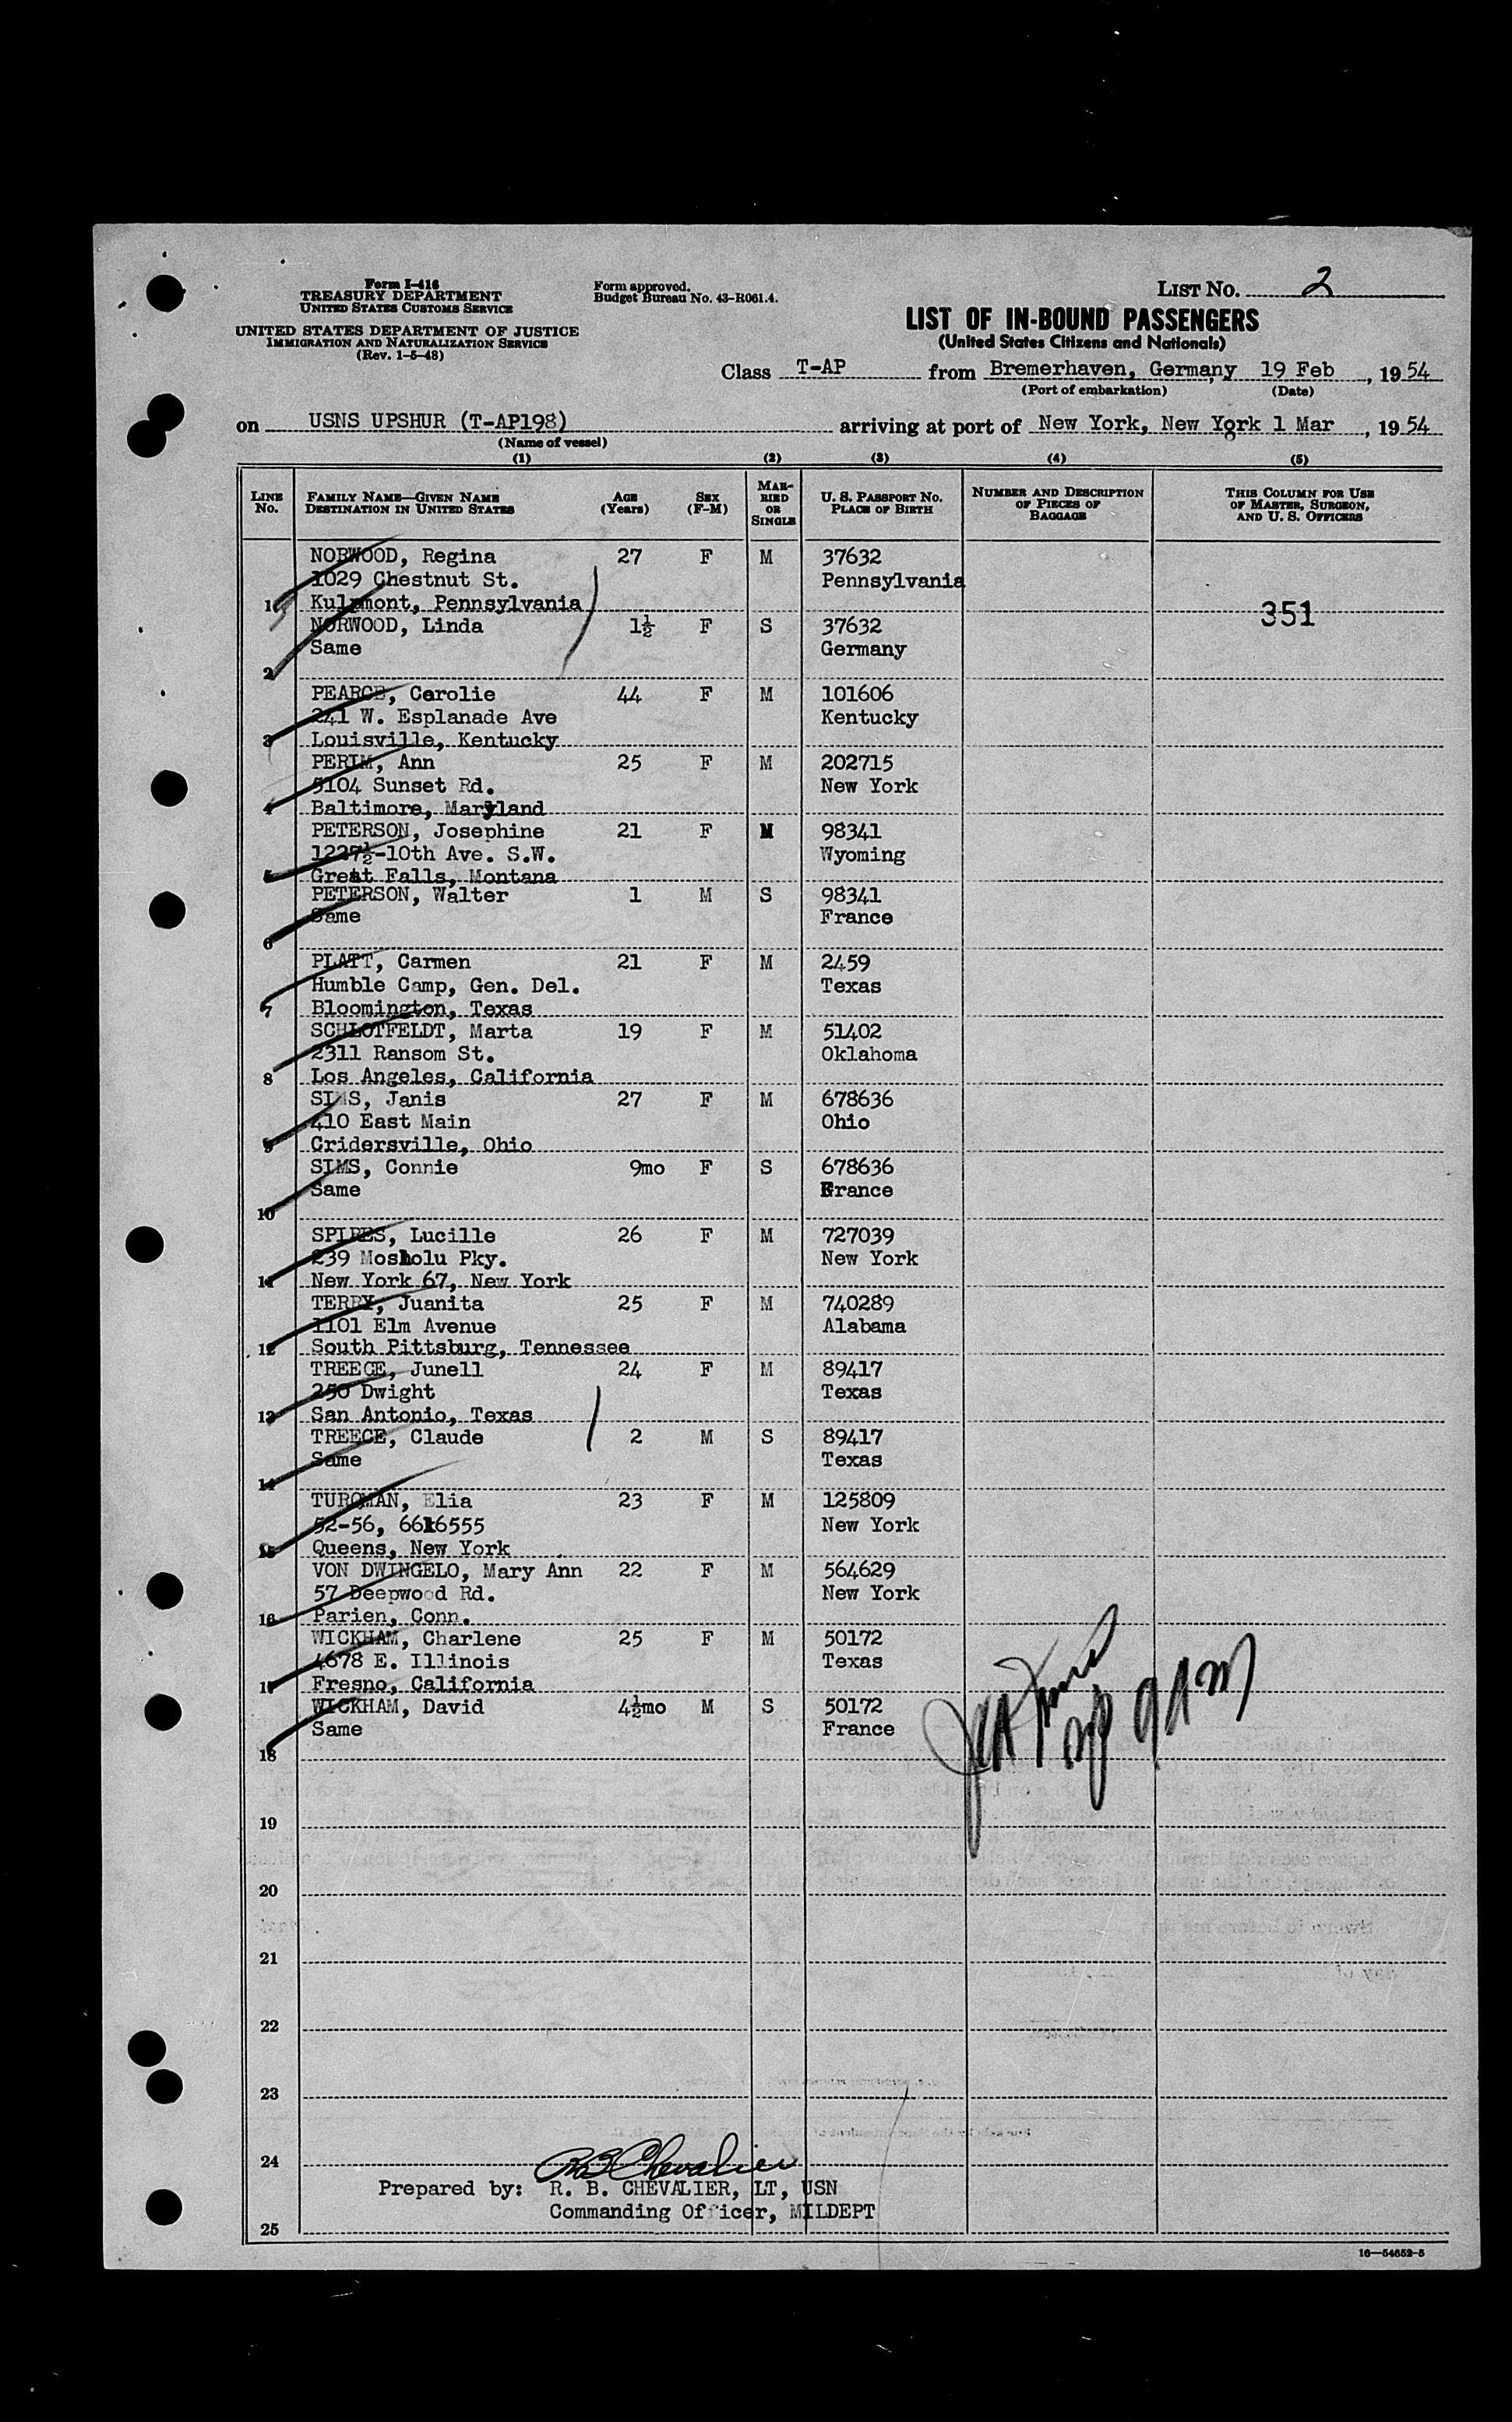 Form I-416
TREASURY DEPARTMENT
UNITED STATES CUSTOMS SERVICE
UNITED STATES DEPARTMENT OF JUSTICE
IMMIGRATION AND NATURALIZATION SERVICE
(Rev. 1-5-48)
Form approved.
Budget Bureau No. 43-R061.4.
LIST NO. 2
LIST OF IN-BOUND PASSENGERS
(United States Citizens and Nationals)
Class T-AP from Bremerhaven, Germany 19 Feb, 19 54
(Port of embarkation) (Date)
on USNS UPSHUR (T-AP198) arriving at port of New York, New York 1 Mar, 19 54
(Name of vessel)
(1) (2) (3) (4) (5)
LINE NO.
FAMILY NAME—GIVEN NAME
DESTINATION IN UNITED STATES
AGE (Years)
SEX (F-M)
MARRIED OR SINGLE
U. S. PASSPORT NO.
PLACE OF BIRTH
NUMBER AND DESCRIPTION OF PIECES OF BAGGAGE
THIS COLUMN FOR USE OF MASTER, SURGEON, AND U. S. OFFICERS
NORWOOD, Regina 27 F M 37632
1029 Chestnut St. Pennsylvania
1 Kulpmont, Pennsylvania 351
NORWOOD, Linda 1½ F S 37632
Same Germany
2
PEARCE, Carolie 44 F M 101606
241 W. Esplanade Ave Kentucky
3 Louisville, Kentucky
PERIM, Ann 25 F M 202715
5104 Sunset Rd. New York
4 Baltimore, Maryland
PETERSON, Josephine 21 F M 98341
1227½-10th Ave. S.W. Wyoming
5 Great Falls, Montana
PETERSON, Walter 1 M S 98341
Same France
6
PLATT, Carmen 21 F M 2459
Humble Camp, Gen. Del. Texas
7 Bloomington, Texas
SCHLOTFELDT, Marta 19 F M 51402
2311 Ransom St. Oklahoma
8 Los Angeles, California
SIMS, Janis 27 F M 678636
410 East Main Ohio
9 Cridersville, Ohio
SIMS, Connie 9mo F S 678636
Same France
10
SPIRES, Lucille 26 F M 727039
239 Mosholu Pky. New York
11 New York 67, New York
TERRY, Juanita 25 F M 740289
1101 Elm Avenue Alabama
12 South Pittsburg, Tennessee
TREECE, Junell 24 F M 89417
250 Dwight Texas
13 San Antonio, Texas
TREECE, Claude 2 M S 89417
Same Texas
14
TURQMAN, Elia 23 F M 125809
52-56, New York
15 Queens, New York
VON DWINGELO, Mary Ann 22 F M 564629
57 Deepwood Rd. New York
16 Parien, Conn.
WICKHAM, Charlene 25 F M 50172
4678 E. Illinois Texas
17 Fresno, California
WICKHAM, David 4½mo M S 50172
Same France
18
19
20
21
22
23
24
Prepared by: R. B. CHEVALIER, LT, USN
Commanding Officer, MILDEPT
25
16—54652-5